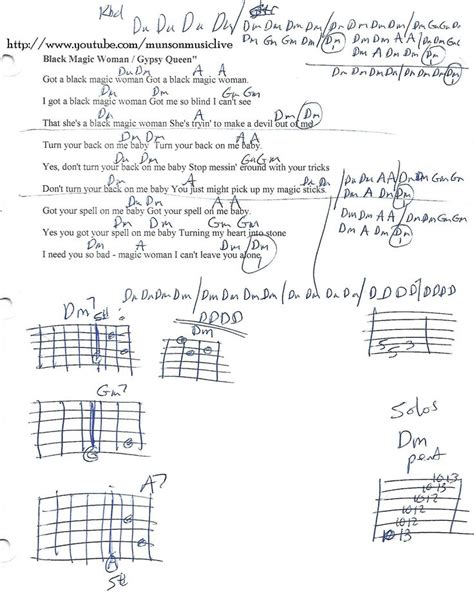 Kbd
Dm Dm Dm Dm/
Dm Dm Dm Dm/Dm Dm Dm Dm/Dm Dm Gm Gm
Dm Gm Gm Dm/Dm
Dm Dm A A/Dm Dm Gm Gm
http://www.youtube.com/munsonmusiclive
Dm A Dm Dm
Black Magic Woman / Gypsy Queen"
Dm Dm A A
Dm Dm Dm Dm/Dm Dm Dm Dm
Got a black magic woman Got a black magic woman.
Dm Dm Gm Gm
I got a black magic woman Got me so blind I can't see
Dm A Dm Dm
That she's a black magic woman She's tryin' to make a devil out of me
Dm Dm A A
Turn your back on me baby Turn your back on me baby.
Dm Dm Gm Gm
Yes, don't turn your back on me baby Stop messin' around with your tricks
Dm A Dm Dm
Dm Dm A A/Dm Dm Gm Gm
Don't turn your back on me baby You just might pick up my magic sticks.
Dm A Dm Dm
Dm Dm A A
Got your spell on me baby Got your spell on me baby.
Dm Dm A A/Dm Dm Gm Gm
Dm Dm Gm Gm
Yes you got your spell on me baby Turning my heart into stone
Dm A Dm Dm
Dm A Dm/Dm
I need you so bad - magic woman I can't leave you alone
Dm Dm Dm Dm/Dm Dm Dm Dm/Dm Dm Dm Dm/DDDD/DDDD
DDDD
Dm7
5th
Dm
5 5 3
Gm7
Solos
Dm
pent
10 13
10 13
10 12
10 12
10 12
10 13
A7
A
5th